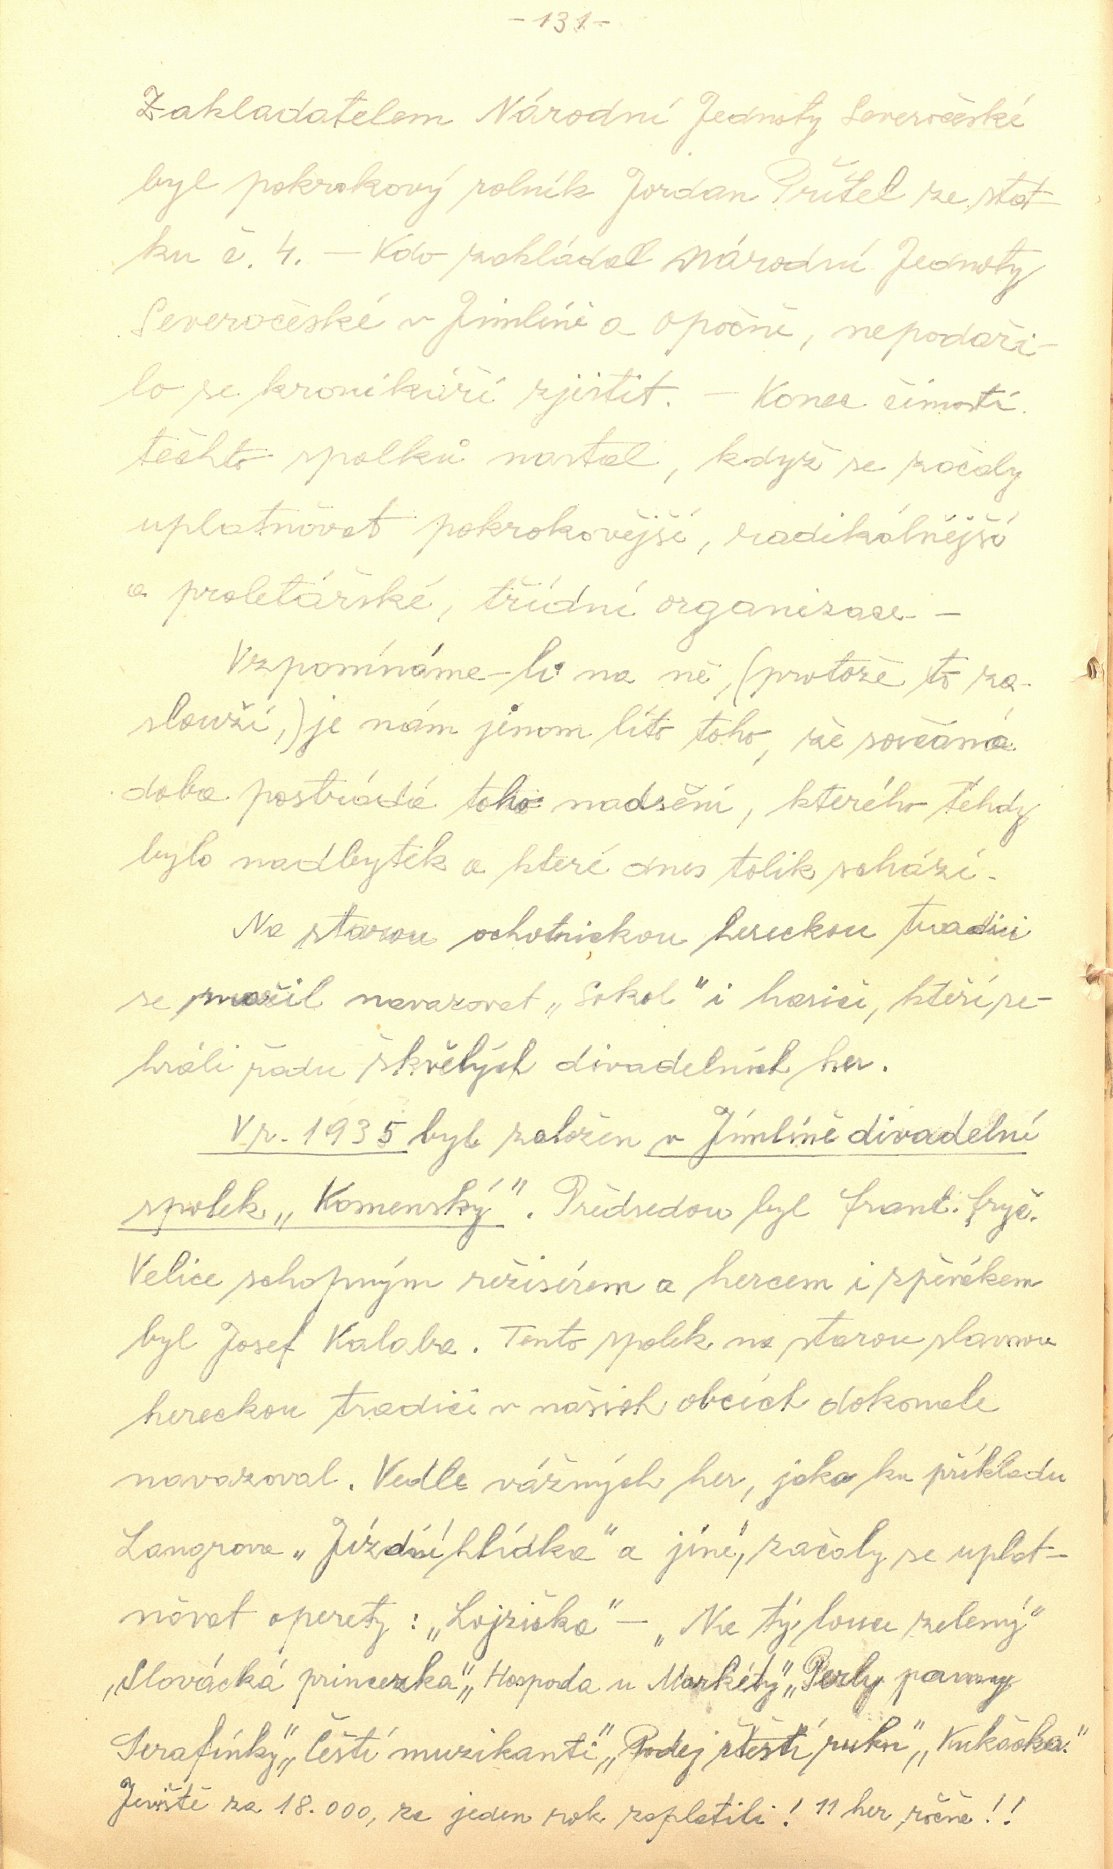 - 131 -
Zakladatelem Národní Jednoty Severočeské
byl pokrokový rolník Jordan Přítel ze stat-
ku č. 4. — Kdo zakládal Národní Jednoty
Severočeské v Jimlíně a Opočně, nepodaři-
lo se kronikáři zjistit. — Konec činnosti
těchto spolků nastal, když se začaly
uplatňovat pokrokovější, radikálnější
a proletářské, třídní organizace —
Vzpomínáme-li na ně, (protože to za-
slouží,) je nám jenom líto toho, že současná
doba postrádá toho nadšení, kterého tehdy
bylo nadbytek a které dnes tolik schází.
Na starou ochotnickou hereckou tradici
se snažil navazovat „Sokol" i hasiči, kteří se-
hráli řadu skvělých divadelních her.
V r. 1935 byl založen v Jimlíně divadelní
spolek „Komenský". Předsedou byl Frant. Fryč.
Velice schopným režisérem a hercem i zpěvákem
byl Josef Kalaba. Tento spolek na starou slavnou
hereckou tradici v našich obcích dokonale
navazoval. Vedle vážných her, jako ku příkladu
Langrova „Jízdní hlídka" a jiné, začaly se uplat-
ňovat operety: „Lojzička" — „Na tý louce zelený"
„Slovácká princezka", „Hospoda u Markéty" „Perly panny
Serafínky", „Čeští muzikanti", „Podej štěstí ruku", „Kukačka."
Jeviště za 18.000, za jeden rok zaplatili! 11 her ročně!!